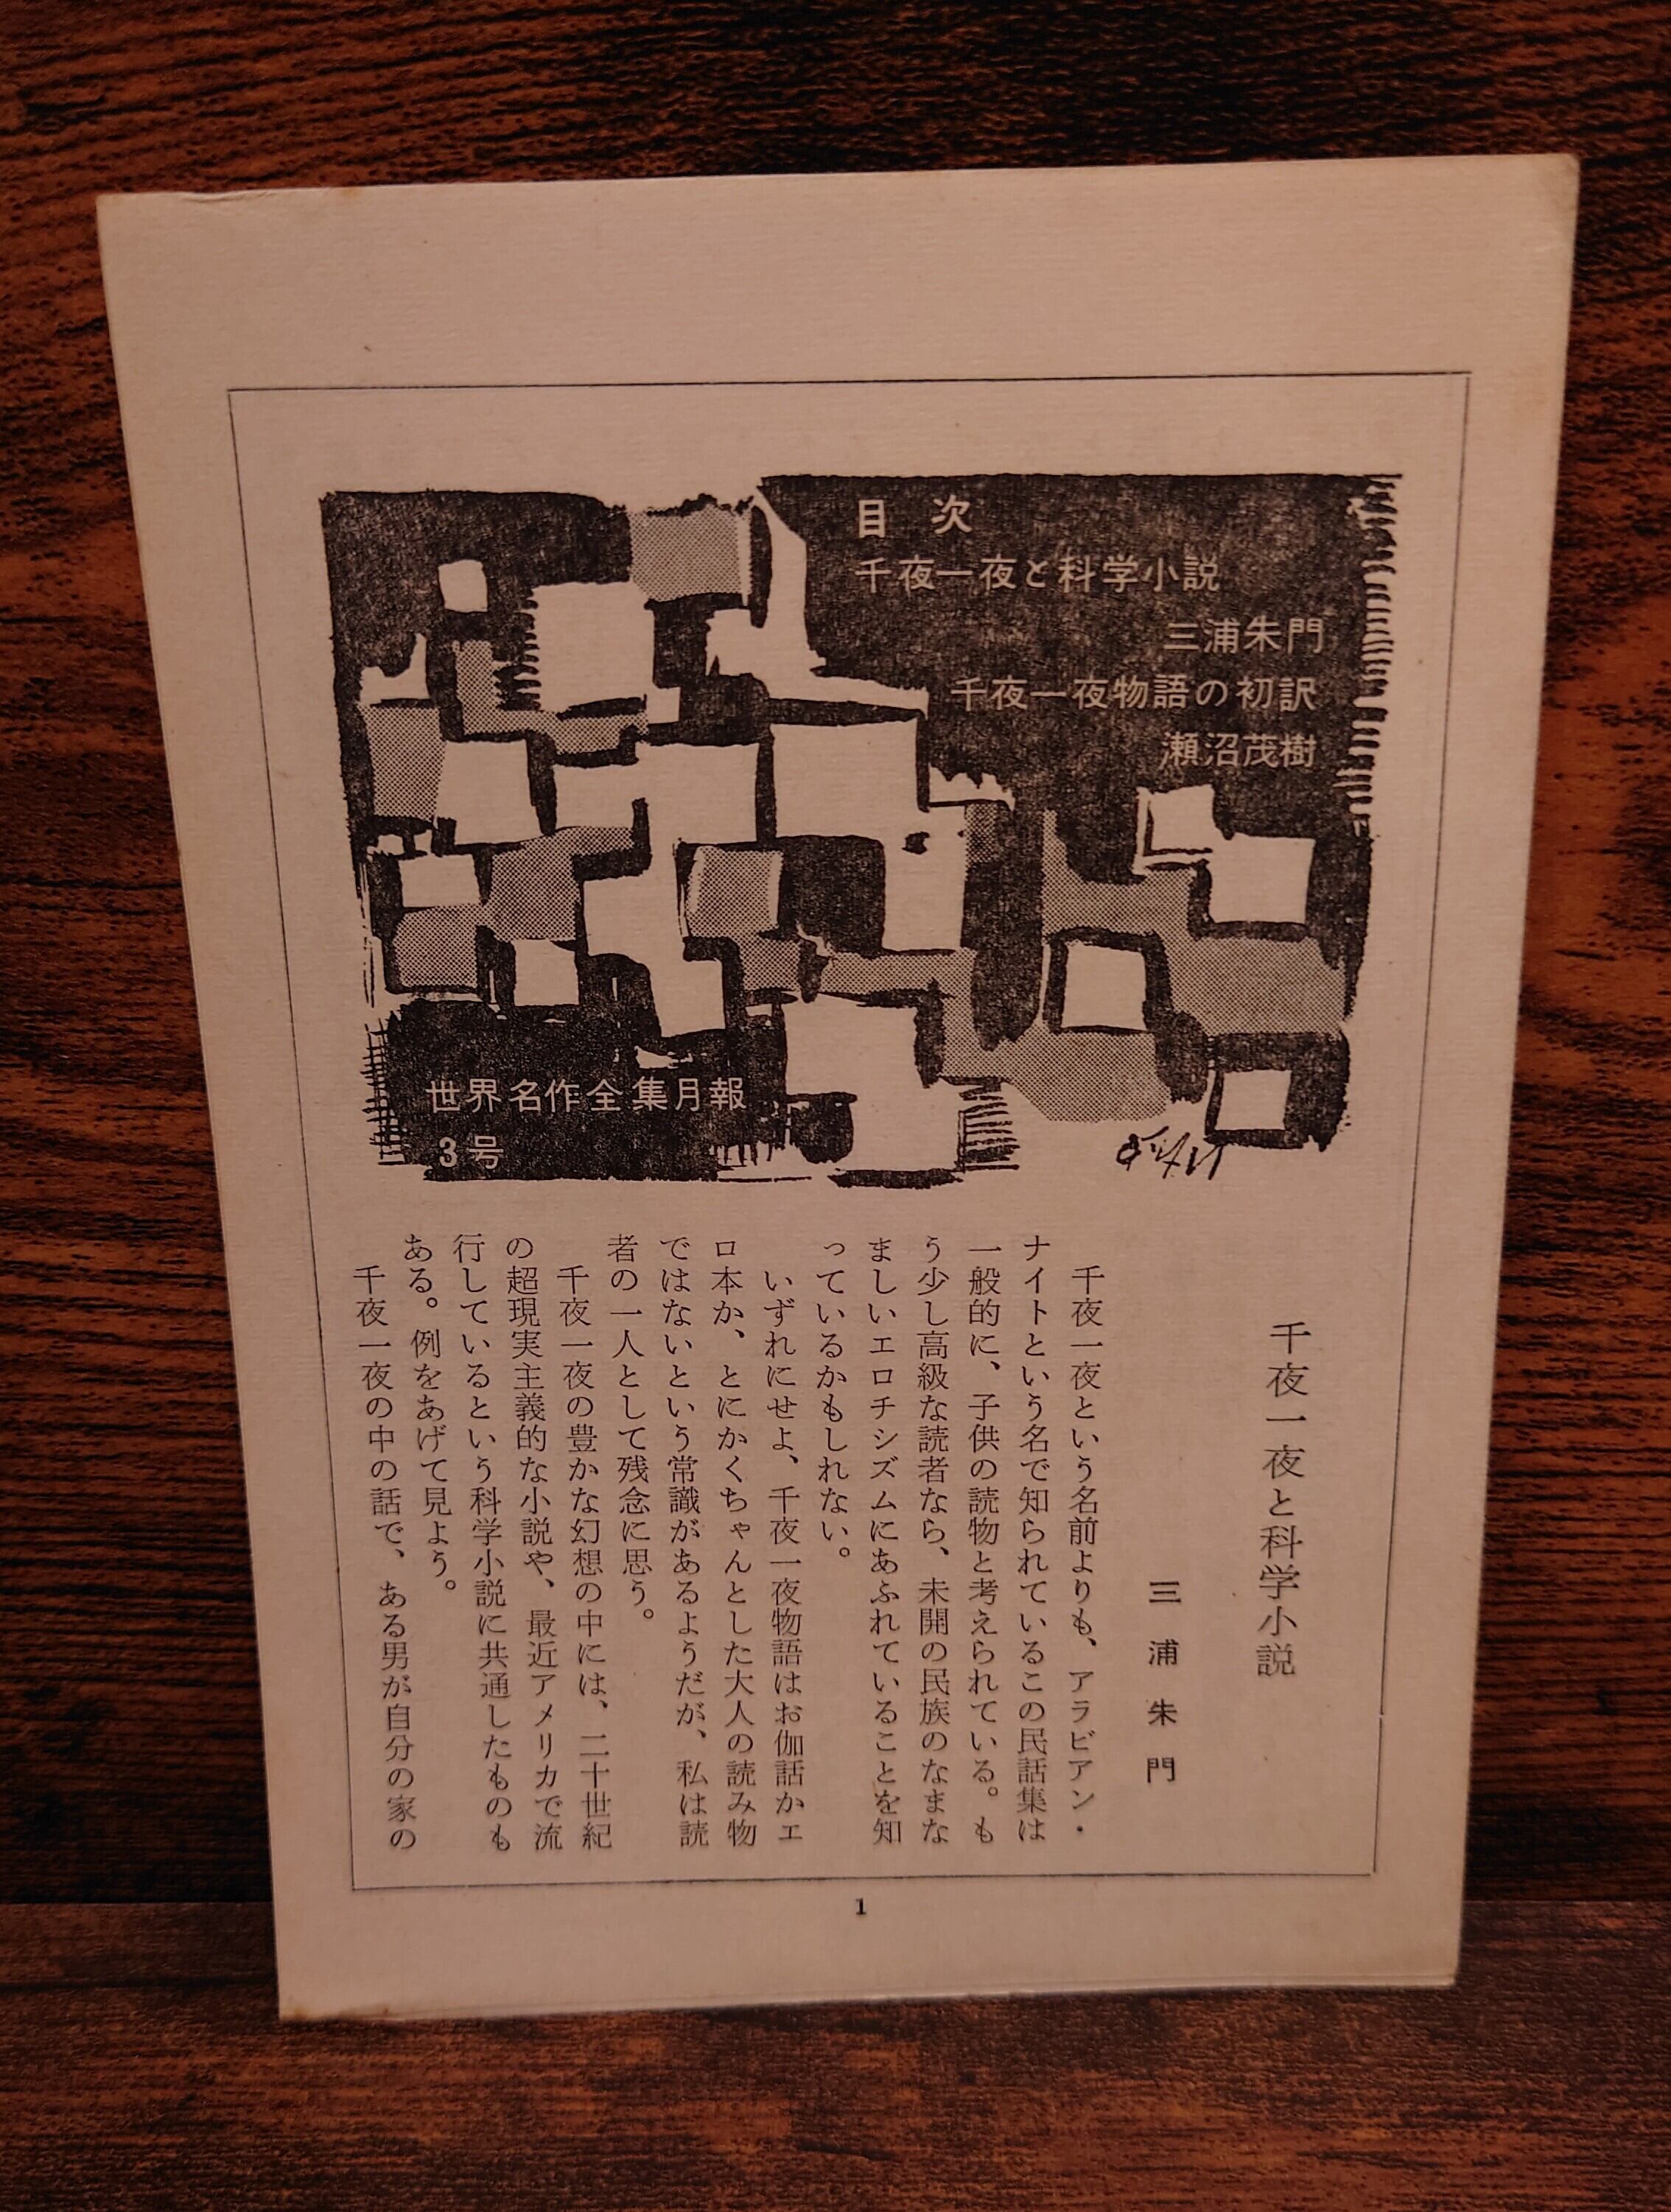 目次
千夜一夜と科学小説
三浦朱門
千夜一夜物語の初訳
瀬沼茂樹
世界名作全集月報
3号
千夜一夜と科学小説
三浦朱門
千夜一夜という名前よりも、アラビアン・
ナイトという名で知られているこの民話集は
一般的に、子供の読物と考えられている。も
う少し高級な読者なら、未開の民族のなまな
ましいエロチシズムにあふれていることを知
っているかもしれない。
いずれにせよ、千夜一夜物語はお伽話かエ
ロ本か、とにかくちゃんとした大人の読み物
ではないという常識があるようだが、私は読
者の一人として残念に思う。
千夜一夜の豊かな幻想の中には、二十世紀
の超現実主義的な小説や、最近アメリカで流
行しているという科学小説に共通したものも
ある。例をあげて見よう。
千夜一夜の中の話で、ある男が自分の家の
1